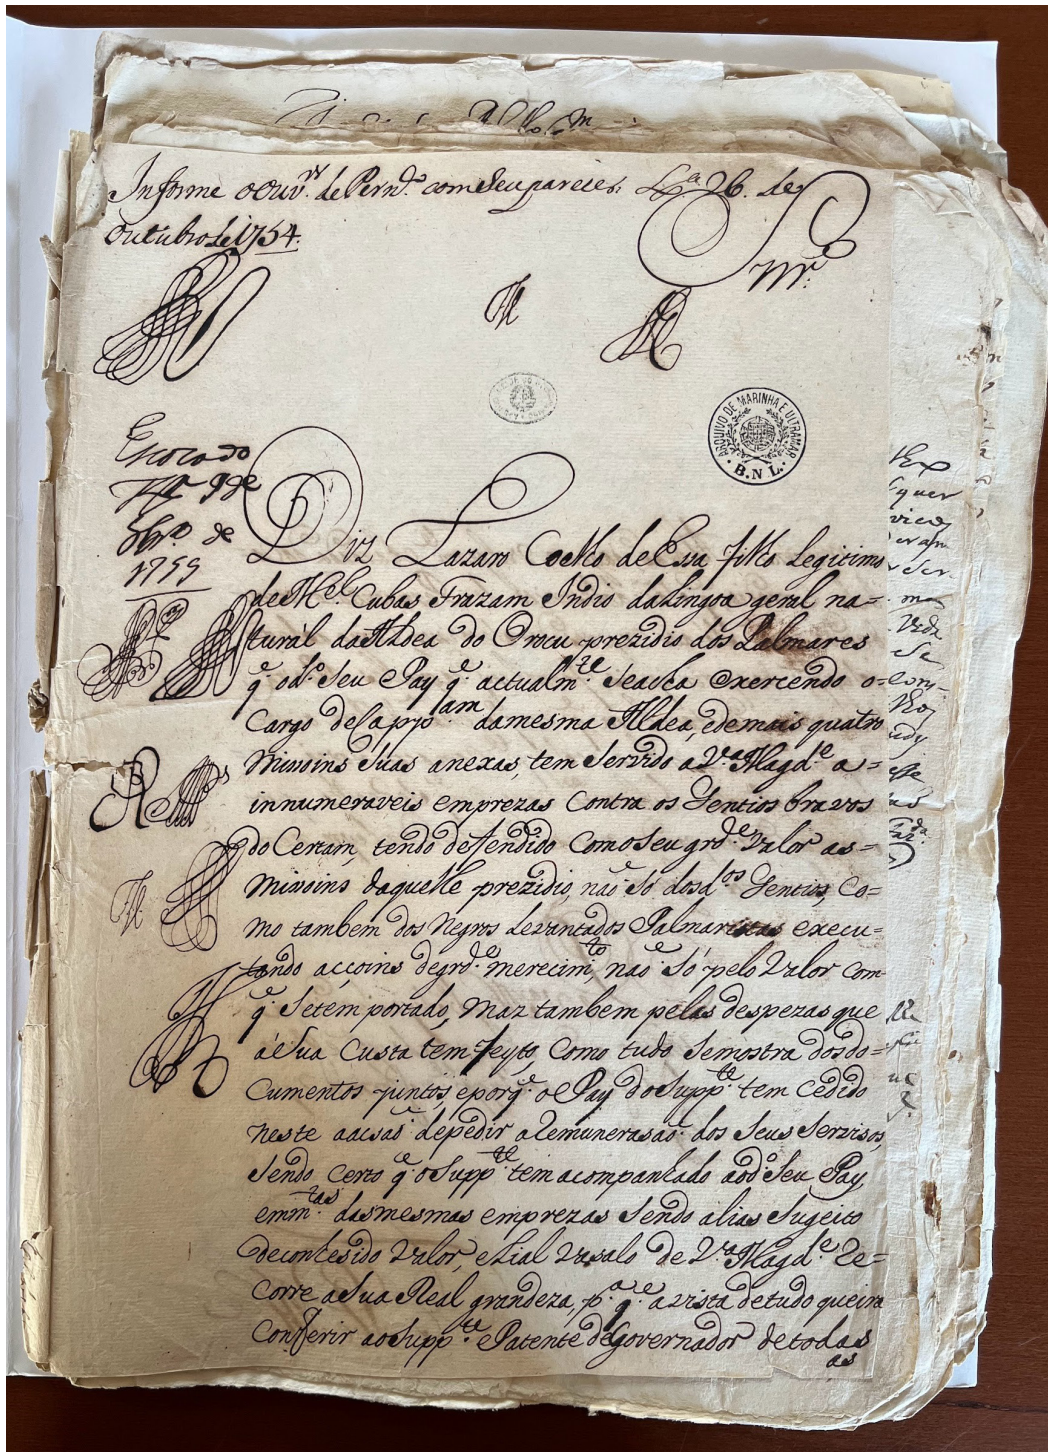 Informe o Ouv.or de Pern.co com seu parecer. Lx.a 26. de
Outubro de 1754.
Snr.
ARQUIVO DE MARINHA E ULTRAMAR
B.N.L.
de
8br.o de
1755
Diz Lazaro Coelho de Eva filho legitimo
de M.el Cubas Frazam Indio da Lingoa geral na=
turál da Aldea do Orocu prezidio dos Palmares
q. o d.o Seu Pay q.e actualm.te Se acha exercendo o=
Cargo de Capp.am da mesma Aldea, e demais quatro
Missoins Suas anexas, tem Servido a V.a Magd.e a=
innumeraveis emprezas Contra os Gentios bravos
do Certam, tendo defendido Com o Seu grd.e Valor as=
Missoins daquelle prezidio, naõ Só dos d.os Gentios, Co=
mo tambem dos Negros Levantados Palmaristas execu=
tando acçoins de grd.e merecim.to, naõ Só pelo Valor Com
q.e Setem portado, Maz tambem pelas despezas que
á Sua Custa tem feyto, Como tudo Semostra dos do=
Cumentos juntos, e porq.e o Pay do Supp.te tem Cedido
neste a acsaõ de pedir a Remunerasaõ dos Seus Servisos,
Sendo Certo q.e o Supp.te tem acompanhado ao d.o Seu Pay
em m.tas das mesmas emprezas Sendo alias Sugeito
de conhesido Valor, e Lial Vasalo de V.a Magd.e Re=
Corre a Sua Real grandeza, p.a q.e a vista de tudo queira
Conferir ao Supp.te e Patente de Governador de todas
as